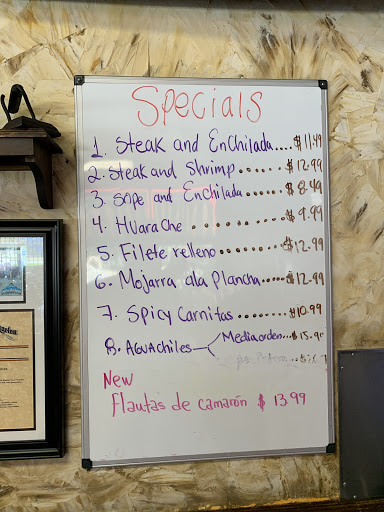 Specials
1. Steak and Enchilada.... $11.49
2. Steak and Shrimp...... $12.99
3. Sope and Enchilada..... $8.49
4. Huarache ......... $9.99
5. Filete relleno........ $12.99
6. Mojarra ala plancha..... $12.99
7. Spicy Carnitas....... $10.99
8. Aguachiles Media orden...$15.
New
Flautas de camarón $13.99